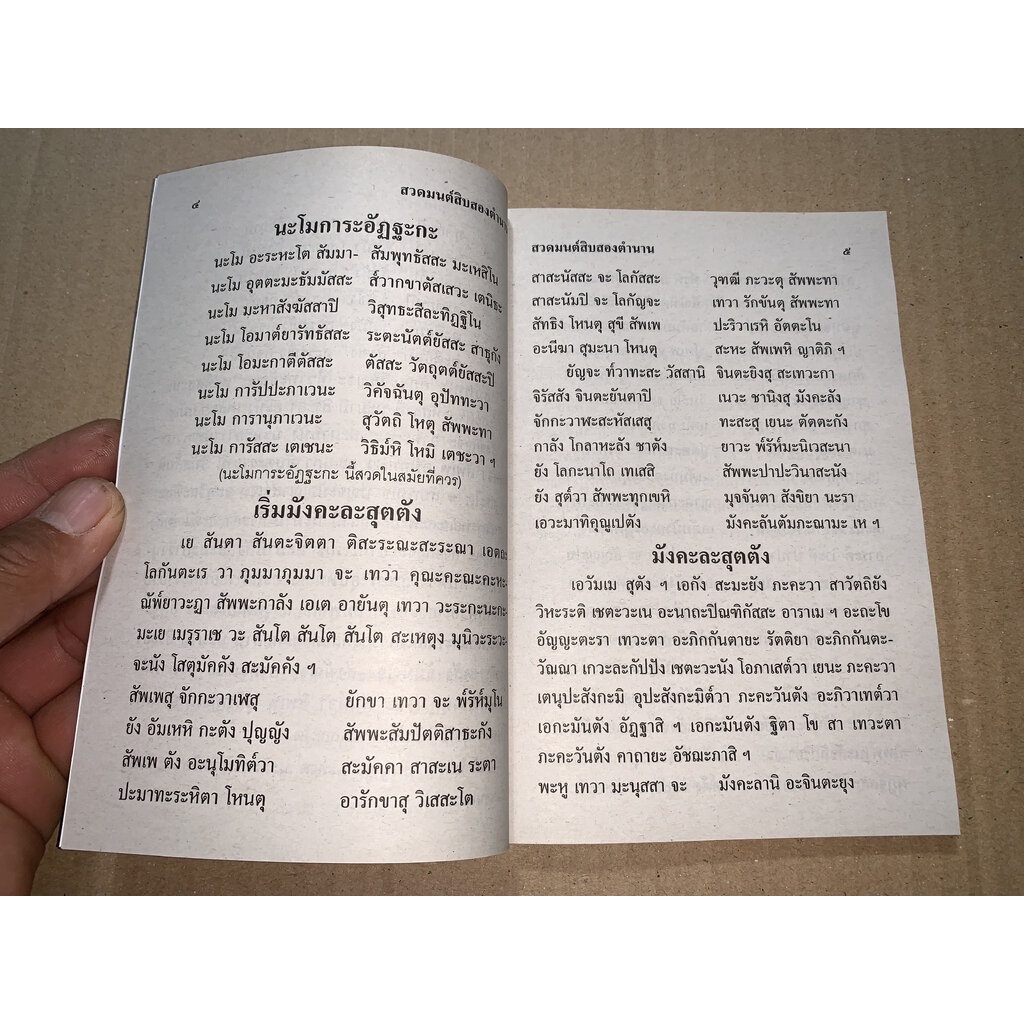 ๔
สวดมนต์สิบสองตำนาน
นะโมการะอัฏฐะกะ
นะโม อะระหะโต สัมมา- สัมพุทธัสสะ มะเหสิโน
นะโม อุตตะมะธัมมัสสะ ส๎วากขาตัสเสวะ เตนิธะ
นะโม มะหาสังฆัสสาปิ วิสุทธะสีละทิฏฐิโน
นะโม โอมาต์ยารัทธัสสะ ระตะนัตต์ยัสสะ สาธุกัง
นะโม โอมะกาตีตัสสะ ตัสสะ วัตถุตต์ยัสสะปิ
นะโม การัปปะภาเวนะ วิคัจฉันตุ อุปัททะวา
นะโม การานุภาเวนะ สุวัตถิ โหตุ สัพพะทา
นะโม การัสสะ เตเชนะ วิธิม์หิ โหมิ เตชะวา ฯ
(นะโมการะอัฏฐะกะ นี้สวดในสมัยที่ควร)
เริ่มมังคะละสุตตัง
เย สันตา สันตะจิตตา ติสะระณะสะระณา เอตถะ
โลกันตะเร วา ภุมมาภุมมา จะ เทวา คุณะคะณะคะหะ-
ณัพ์ยาวะฏา สัพพะกาลัง เอเต อายันตุ เทวา วะระกะนะกะ-
มะเย เมรุราเช วะ สันโต สันโต สันโต สะเหตุง มุนิวะระวะ-
จะนัง โสตุมัคคัง สะมัคคัง ฯ
สัพเพสุ จักกะวาเฬสุ ยักขา เทวา จะ พ์รัห์มุโน
ยัง อัมเหหิ กะตัง ปุญญัง สัพพะสัมปัตติสาธะกัง
สัพเพ ตัง อะนุโมทิต์วา สะมัคคา สาสะเน ระตา
ปะมาทะระหิตา โหนตุ อารักขาสุ วิเสสะโต
สวดมนต์สิบสองตำนาน
๕
สาสะนัสสะ จะ โลกัสสะ วุฑฒี ภะวะตุ สัพพะทา
สาสะนัมปิ จะ โลกัญจะ เทวา รักขันตุ สัพพะทา
สัทธิง โหนตุ สุขี สัพเพ ปะริวาเรหิ อัตตะโน
อะนีฆา สุมะนา โหนตุ สะหะ สัพเพหิ ญาติภิ ฯ
ยัญจะ ท์วาทะสะ วัสสานิ จินตะยิงสุ สะเทวะกา
จิรัสสัง จินตะยันตาปิ เนวะ ชานิงสุ มังคะลัง
จักกะวาฬะสะหัสเสสุ ทะสะสุ เยนะ ตัตตะกัง
กาลัง โกลาหะลัง ชาตัง ยาวะ พ์รัห์มะนิเวสะนา
ยัง โลกะนาโถ เทเสสิ สัพพะปาปะวินาสะนัง
ยัง สุต์วา สัพพะทุกเขหิ มุจจันตา สังขิยา นะรา
เอวะมาทิคุณูเปตัง มังคะลันตัมภะณามะ เห ฯ
มังคะละสุตตัง
เอวัมเม สุตัง ฯ เอกัง สะมะยัง ภะคะวา สาวัตถิยัง
วิหะระติ เชตะวะเน อะนาถะปิณฑิกัสสะ อาราเม ฯ อะถะโข
อัญญะตะรา เทวะตา อะภิกกันตายะ รัตติยา อะภิกกันตะ-
วัณณา เกวะละกัปปัง เชตะวะนัง โอภาเสต์วา เยนะ ภะคะวา
เตนุปะสังกะมิ อุปะสังกะมิต์วา ภะคะวันตัง อะภิวาเทต์วา
เอกะมันตัง อัฏฐาสิ ฯ เอกะมันตัง ฐิตา โข สา เทวะตา
ภะคะวันตัง คาถายะ อัชฌะภาสิ ฯ
พะหู เทวา มะนุสสา จะ มังคะลานิ อะจินตะยุง